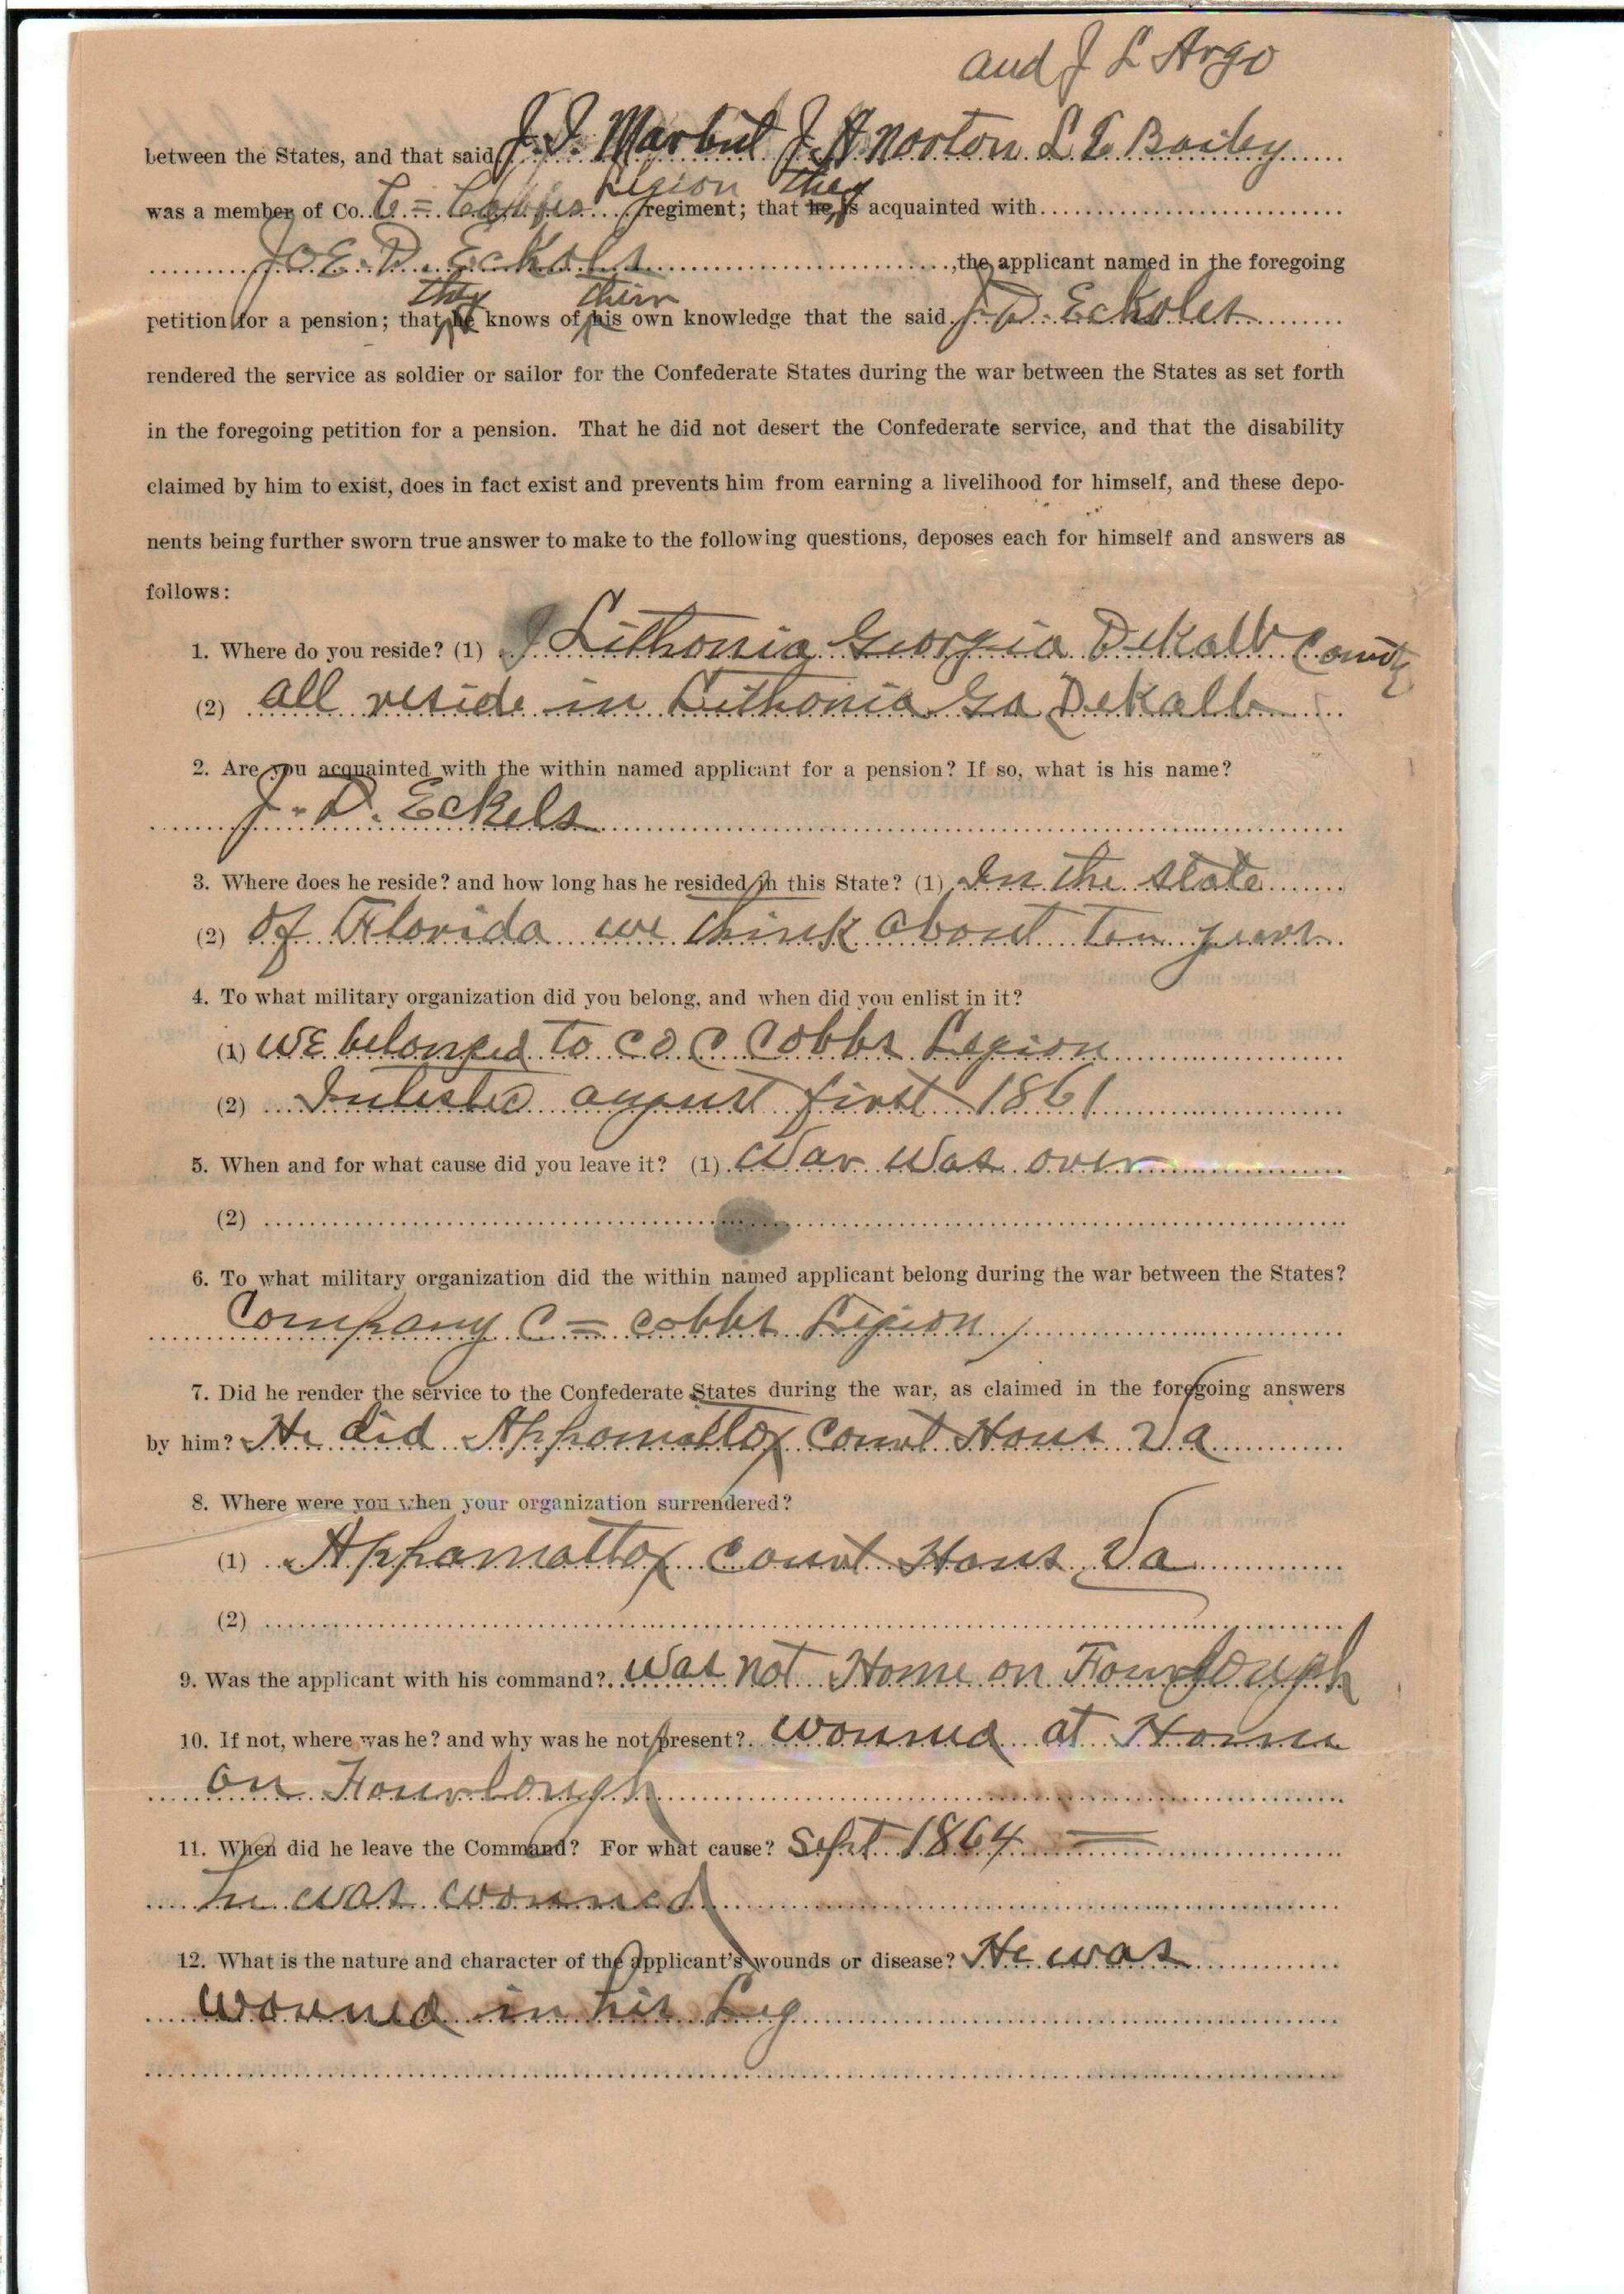 and J L Argo
between the States, and that said J. I. Marbut J. H Norton L E Baily
Legion they
was a member of Co. C = Cobbs regiment; that he is acquainted with
JOE. D. Eckols, the applicant named in the foregoing
they their
petition for a pension; that he knows of his own knowledge that the said J. D. Eckoles
rendered the service as soldier or sailor for the Confederate States during the war between the States as set forth
in the foregoing petition for a pension. That he did not desert the Confederate service, and that the disability
claimed by him to exist, does in fact exist and prevents him from earning a livelihood for himself, and these depo-
nents being further sworn true answer to make to the following questions, deposes each for himself and answers as
follows:
1. Where do you reside? (1) Lithonia Georgia DeKalb County
(2) all reside in Lithonia Ga DeKalb
2. Are you acquainted with the within named applicant for a pension? If so, what is his name?
J. D. Eckels
3. Where does he reside? and how long has he resided in this State? (1) In the state
(2) of Florida we think about ten years
4. To what military organization did you belong, and when did you enlist in it?
(1) WE belonged to CO C Cobbs Legion
(2) Inlisted august first 1861
5. When and for what cause did you leave it? (1) War Was over
(2)
6. To what military organization did the within named applicant belong during the war between the States?
Company C = cobbs Legion
7. Did he render the service to the Confederate States during the war, as claimed in the foregoing answers
by him? He did Appomattox Court Hous Va
8. Where were you when your organization surrendered?
(1) Appamattox Court Hous Va
(2)
9. Was the applicant with his command? Was not Home on Fourlough
10. If not, where was he? and why was he not present? wouned at Home
on Fourlough
11. When did he leave the Command? For what cause? Sept 1864 =
he was wouned
12. What is the nature and character of the applicant's wounds or disease? He was
wouned in his Leg